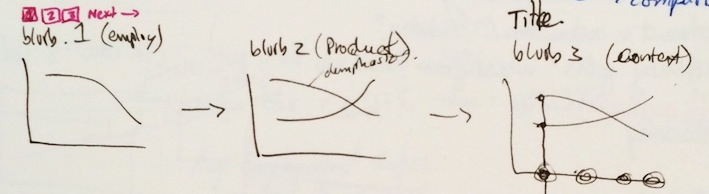 1 2 3 Next →
blurb.1 (employ)
blurb 2 (Product)
demphasiz
Title
blurb 3 (context)